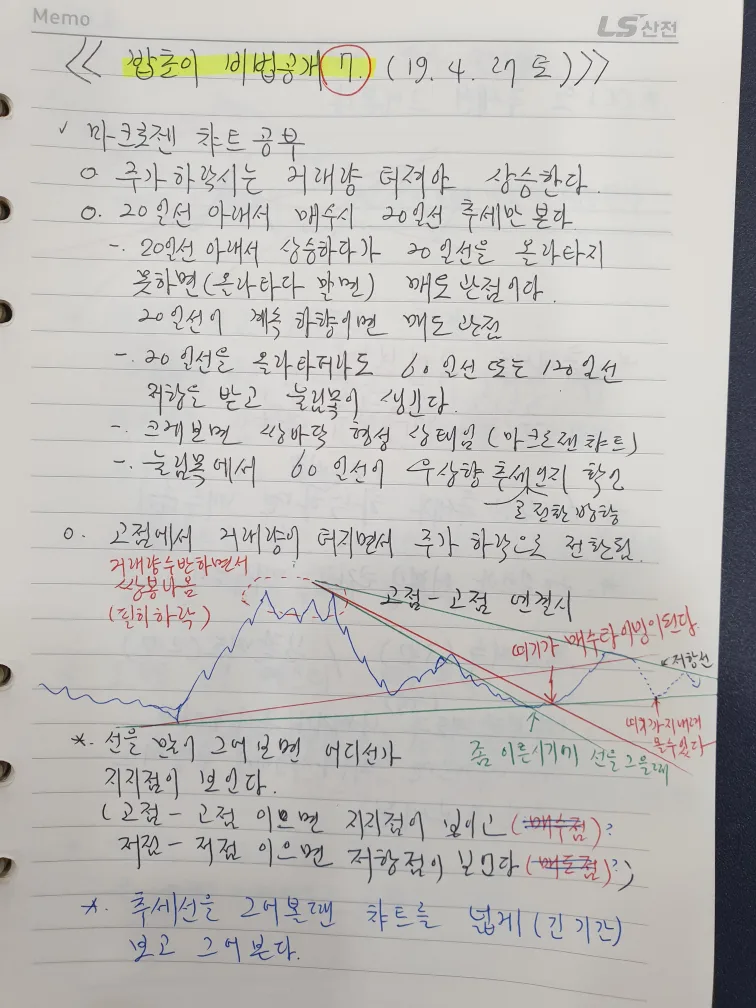 Memo
LS산전
<< 밥춘이 비법공개 7. (19. 4. 27 토) >>>
✓ 마크로젠 챠트 공부
o 주가 하락시는 거래량 터져야 상승한다.
o. 20일선 아래서 매수시 20일선 추세만 본다
-. 20일선 아래서 상승하다가 20일선을 올라타지
못하면(올라타다 말면) 매도 관점이다.
20일선이 계속 하향이면 매도 관점
-. 20일선을 올라타더라도 60일선 또는 120일선
저항을 받고 눌림목이 생긴다.
-. 크게보면 쌍바닥 형성 상태임 (마크로젠챠트)
-. 눌림목에서 60일선이 우상향 추세인지 확인
로 전환 방향
o. 고점에서 거래량이 터지면서 주가 하락으로 전환됨.
거래량수반하면서
쌍봉나옴
(필히하락)
고점-고점 연결시
여기가 매수타이밍이된다
저항선
여기가지내려
올수있다
좀 이른시기에 선을 그을때
*. 선을 많이 그어보면 어디선가
지지점이 보인다.
(고점-고점 이으면 지지점이 보이고 (매수점)?
저점-저점 이으면 저항점이 보인다 (매도점)?)
*. 추세선을 그어볼땐 챠트를 넓게(긴 기간)
보고 그어본다.